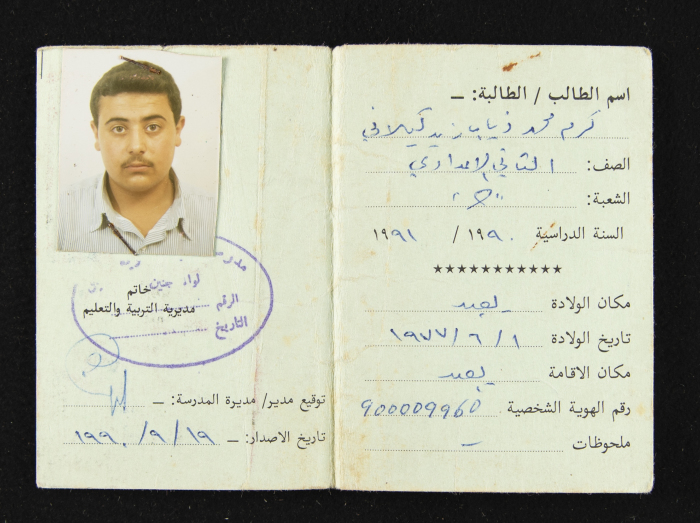 اسم الطالب / الطالبة: ـ
كرم محمد ذياب زيد كيلاني
الصف: الثاني الاعدادي
الشعبة: "ج"
السنة الدراسية ١٩٩٠ / ١٩٩١
***********
مكان الولادة يعبد
تاريخ الولادة ١ / ٦ / ١٩٧٧
مكان الاقامة يعبد
رقم الهوية الشخصية 900009960
ملحوظات -
لواء جنين
خاتم
الرقم
مديرية التربية والتعليم
التاريخ
توقيع مدير/ مديرة المدرسة: ـ
تاريخ الاصدار: ـ ١٩ / ٩ / ١٩٩٠